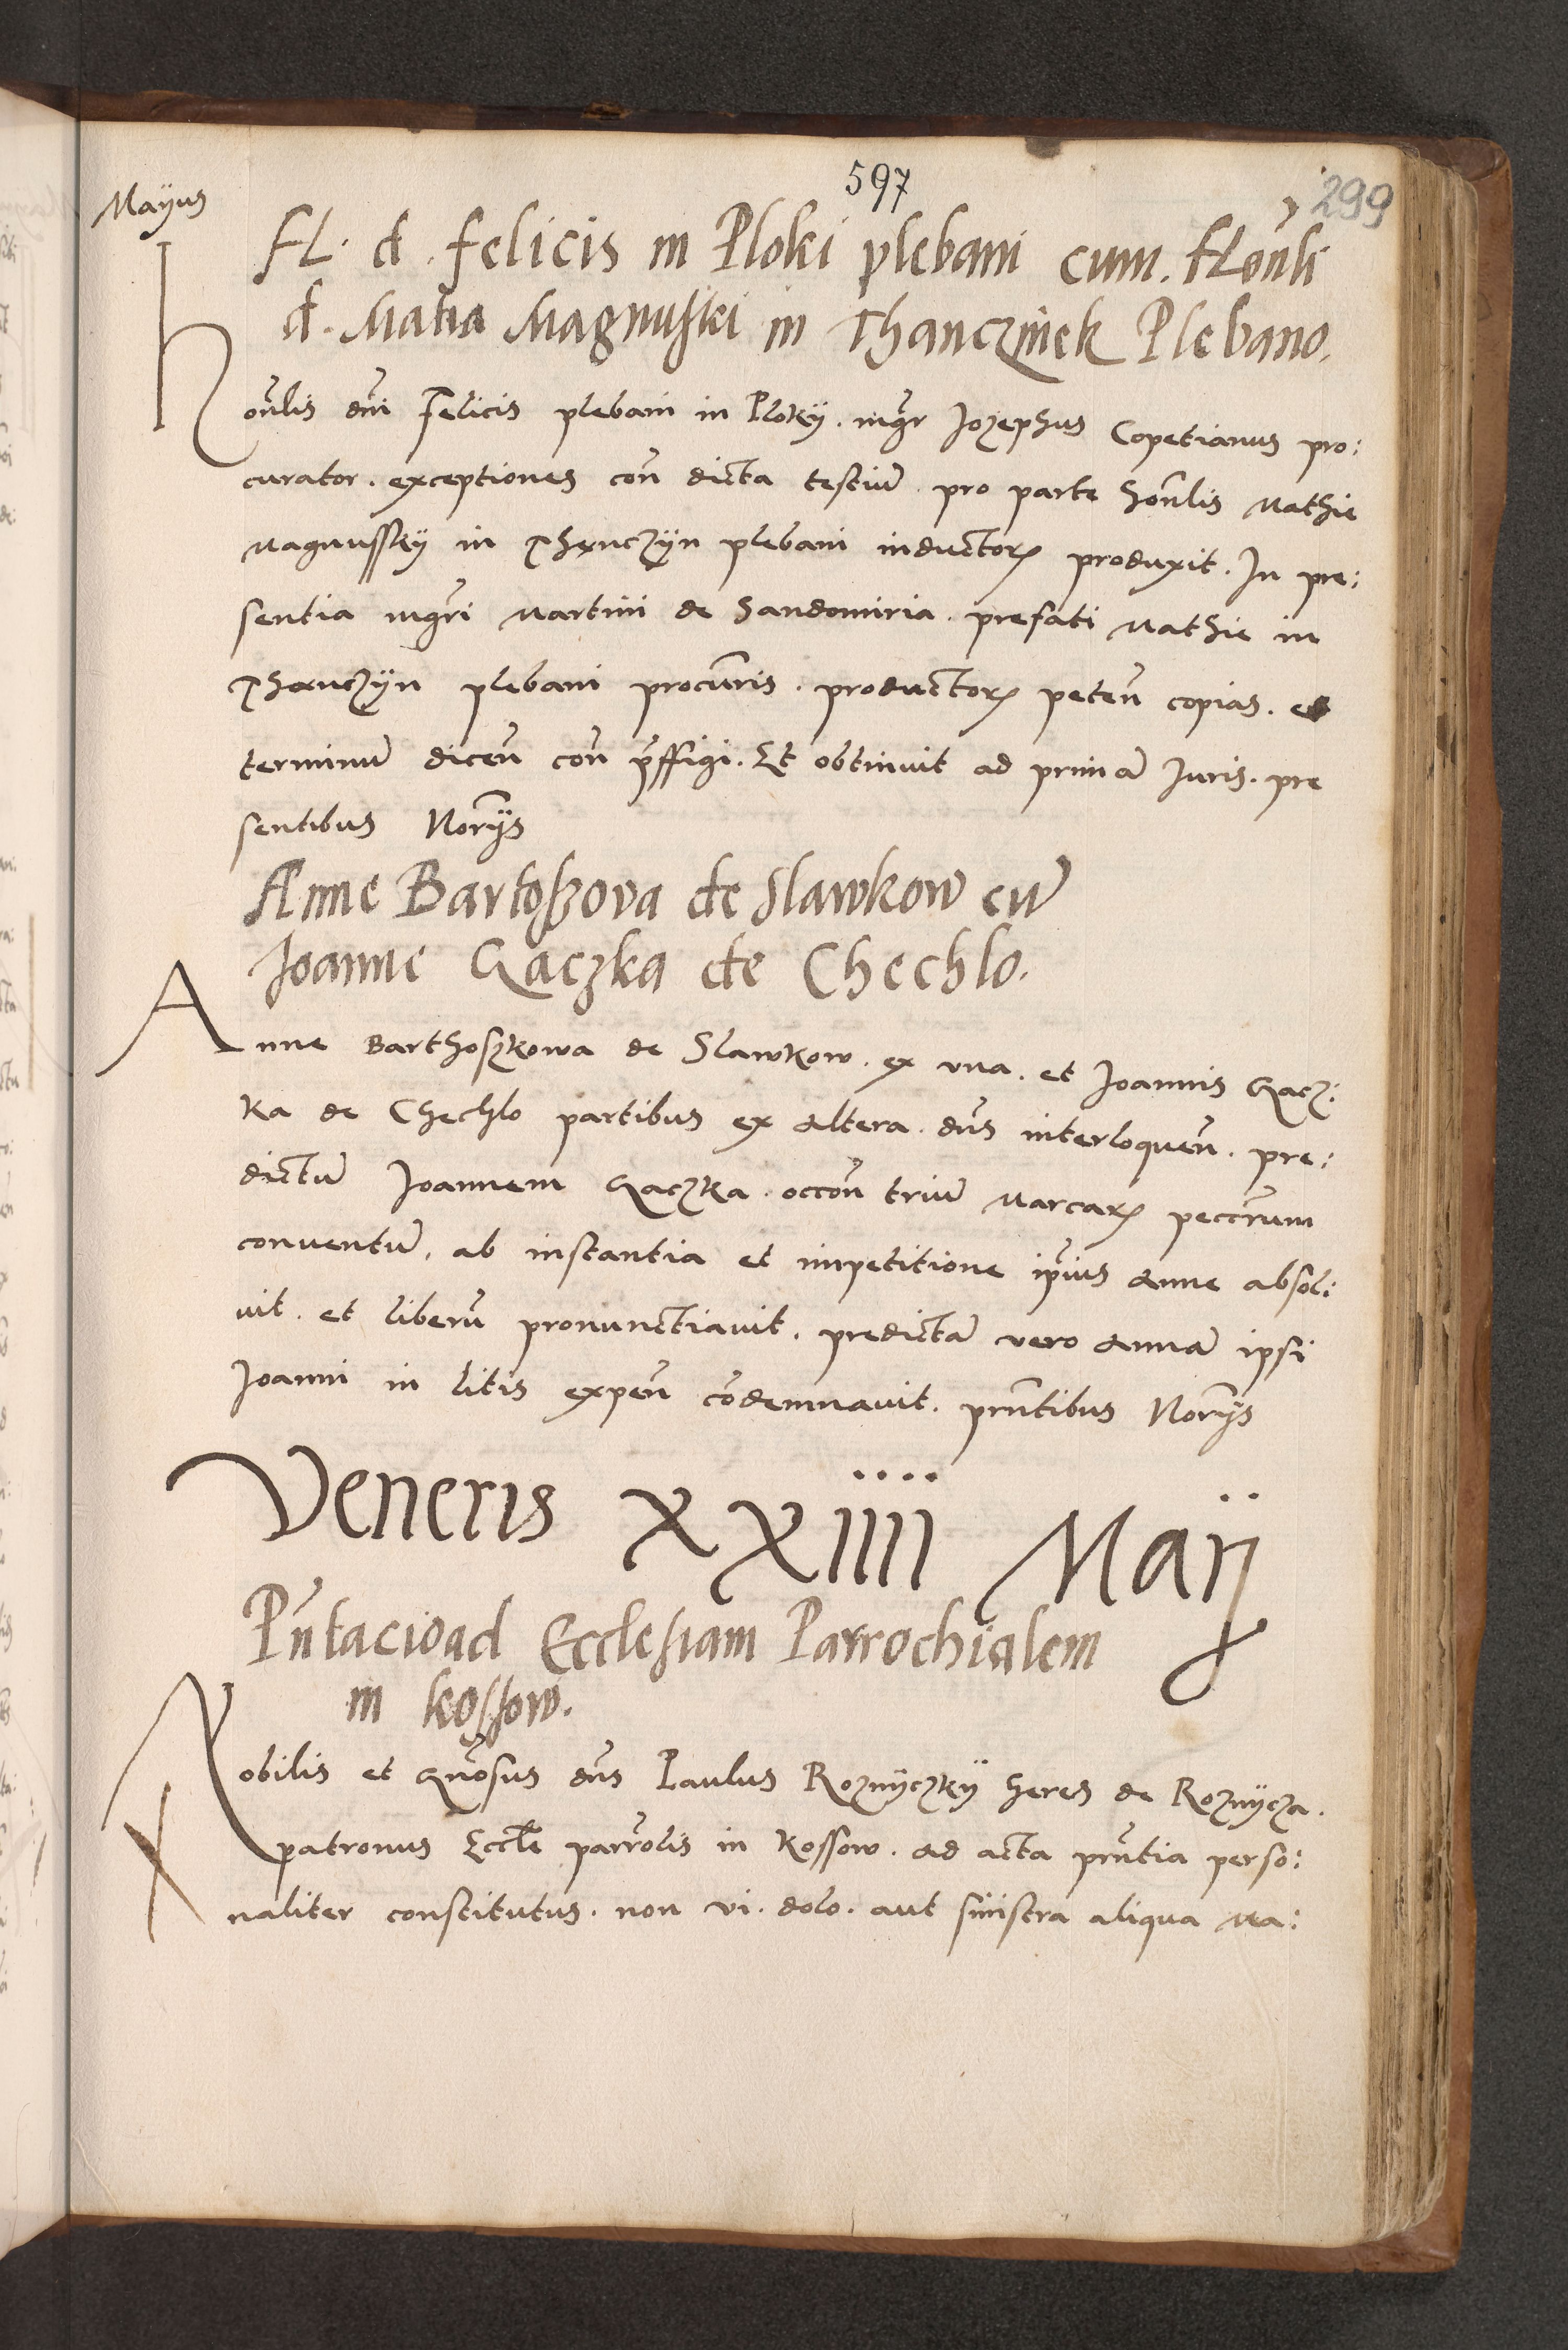 597
299
Mayus
H. d. Felicis in Ploki plebani cum. Hon̄li
d. Matia Magnuski in Thanczinek Plebano.
Hon̄lis dn̄i Felicis plebani in Plokÿ. mgr̄ Jozephus Copetianus pro:
curator. exceptiones con̄ dicta testiū. pro parte hon̄lis Mathie
Magnusskÿ in Thenczÿn plebani inductoꝝ produxit. In pre:
sentia mgr̄i Martini de Sandomiria. prefati Mathie in
Thenczÿn plebani procur̄ris. productoꝝ peten̄ copias. et
terminū dicen̄ con̄ p̄ffigi. Et obtinuit ad primā Juris. pre
sentibus Nor̄ijs
Anne Bartoszova de Slawkow cū
Joanne Gaczka de Chechlo.
Anne Barthoszkowa de Slawkow. ex vna. et Joannis Gacz:
ka de Chechlo partibus ex altera. dn̄s interloquen̄. pre:
dictū Joannem Gaczka. occon̄ triū Marcaꝝ peccr̄um
conuentū. ab instantia et impetitione ip̄ius Anne absol:
uit. et liberū pronunctiauit. predictā vero Annā ipsi
Joanni in litis expen̄ cōdemnauit. prn̄tibus Nor̄ijs
Veneris XXiiii Maij
Pn̄tacio ad Ecclesiam Parrochialem
in Kossow.
Nobilis et Gn̄osus dn̄s Paulus Roznÿczkÿ heres de Roznÿcza.
patronus Eccl̄e parr̄olis in Kossow. ad acta prn̄tia perso:
naliter constitutus. non vi. dolo. aut sinistra aliqua Ma: